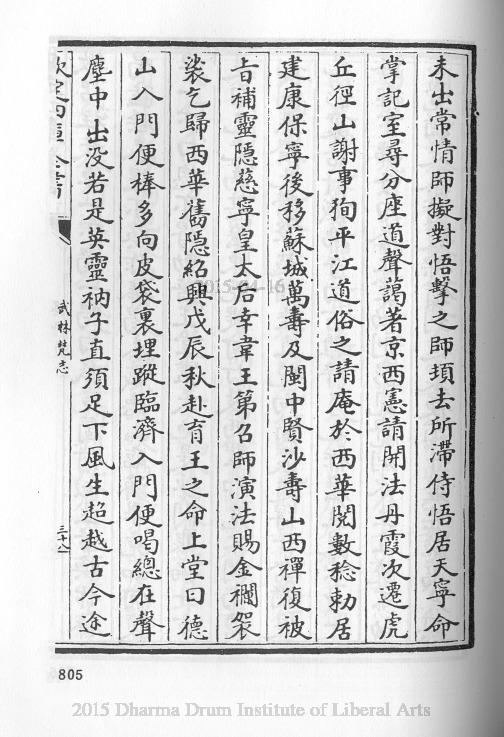 未出常情師擬對悟擊之師頊去所滯侍悟居天寧命
掌記室尋分座道聲藹著京西憲請開法丹霞次遷虎
丘徑山謝事狥平江道俗之請庵於西華閱數稔勅居
建康保寧後移蘇城萬壽及閩中賢沙壽山西禪復被
旨補靈隱慈寧皇太后幸韋王第召師演法賜金襴袈
裟乞歸西華舊隱紹興戊辰秋赴育王之命上堂曰德
山入門便棒多向皮袋裏埋蹤臨濟入門便喝總在聲
塵中出没若是英靈衲子直須足下風生超越古今途
欽定四庫全書
武林梵志
三十八
805
2015-04-16
2015 Dharma Drum Institute of Liberal Arts